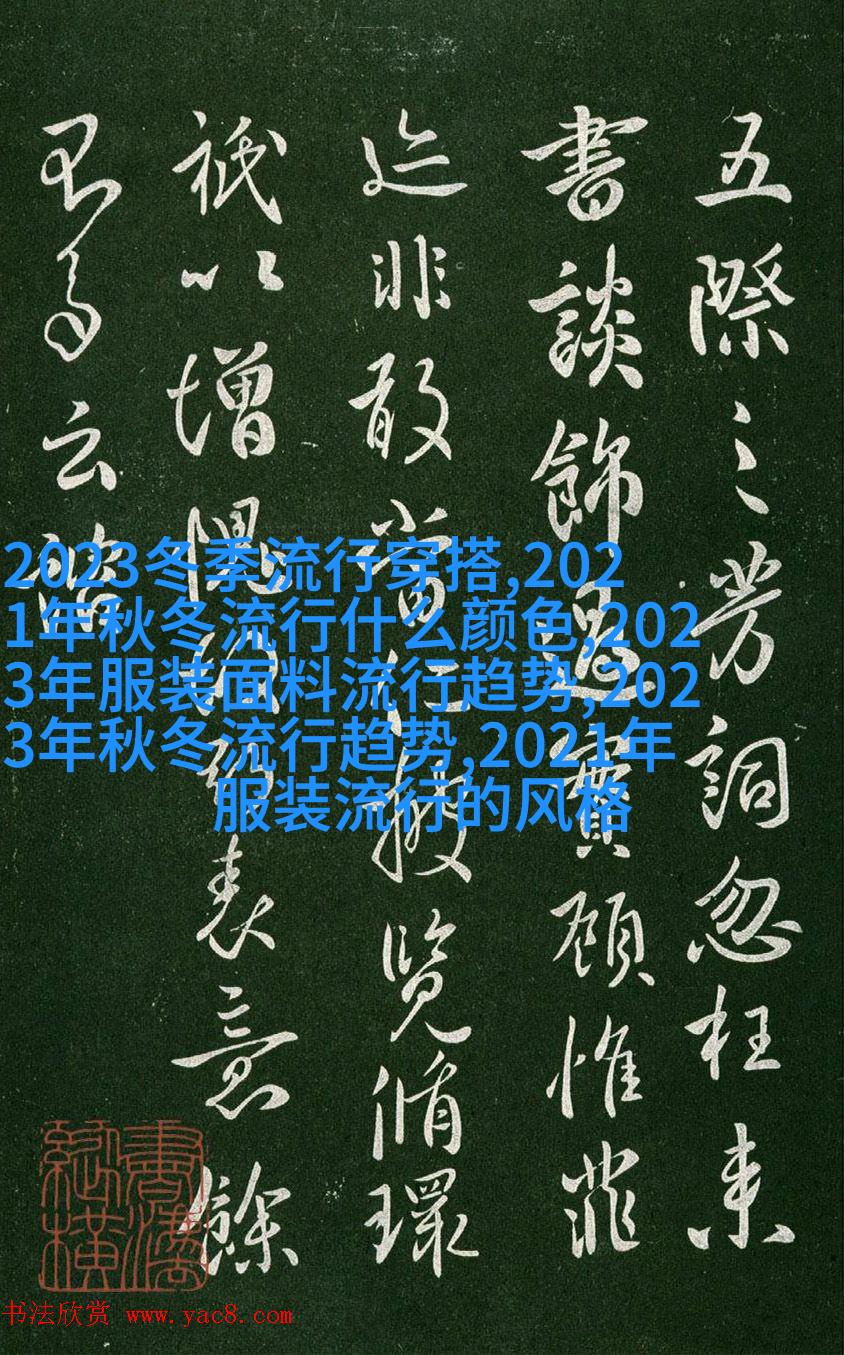 五際之芳詞忽枉來
書談飾過實顧惟菲
迹非敢當覽循環
祇以增愧表意餘
云
2023冬季流行穿搭,202
1年秋冬流行什么颜色,202
3年服装面料流行趋势,202
3年秋冬流行趋势,2021年
服装流行的风格
书法欣赏 www.yac8.com